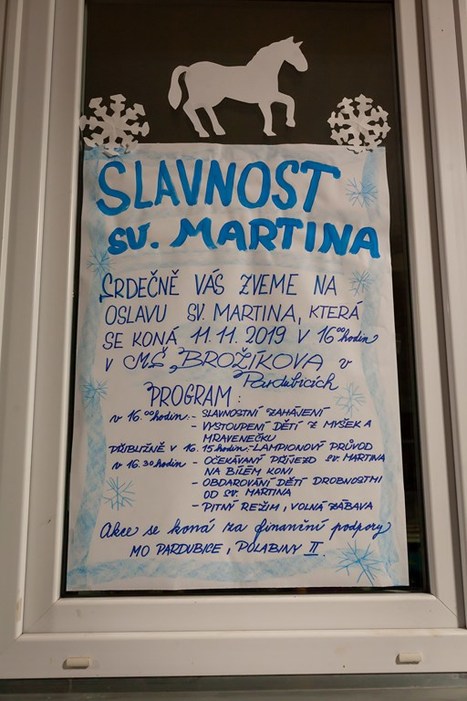 SLAVNOST
SV. MARTINA
SRDEČNĚ VÁS ZVEME NA
OSLAVU SV. MARTINA, KTERÁ
SE KONÁ 11.11.2019 V 16⁰⁰ hodin
V MŠ BROŽÍKOVA v
Pardubicích
PROGRAM:
v 16.⁰⁰ hodin - SLAVNOSTNÍ ZAHÁJENÍ
- VYSTOUPENÍ DĚTÍ Z MYŠEK A
MRAVENEČKU
PŘIBLIŽNĚ V 16.15 hodin - LAMPIONOVÝ PRŮVOD
v 16.30 hodin - OČEKÁVANÝ PŘÍJEZD SV. MARTINA
NA BÍLÉM KONI
- OBDAROVÁNÍ DĚTÍ DROBNOSTMI
OD SV. MARTINA
- PITNÝ REŽIM, VOLNÁ ZÁBAVA
Akce se koná za finanční podpory
MO PARDUBICE, POLABINY II.